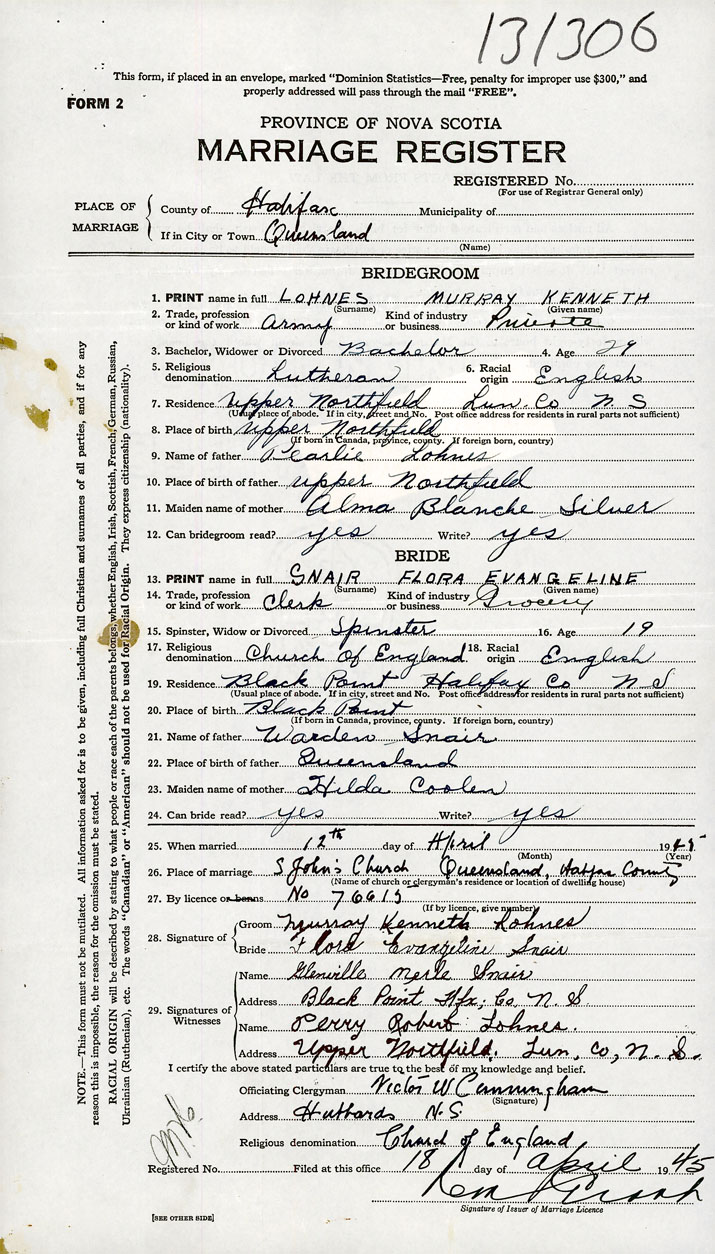 131306
This form, if placed in an envelope, marked "Dominion Statistics—Free, penalty for improper use $300," and
properly addressed will pass through the mail "FREE".
FORM 2
PROVINCE OF NOVA SCOTIA
MARRIAGE REGISTER
REGISTERED No.
(For use of Registrar General only)
PLACE OF MARRIAGE
County of Halifax Municipality of
If in City or Town Queensland
(Name)
BRIDEGROOM
1. PRINT name in full LOHNES MURRAY KENNETH
(Surname) (Given name)
2. Trade, profession or kind of work Army Kind of industry or business Private
3. Bachelor, Widower or Divorced Bachelor 4. Age 29
5. Religious denomination Lutheran 6. Racial origin English
7. Residence Upper Northfield Lun. Co N S
(Usual place of abode. If in city, street and No. Post office address for residents in rural parts not sufficient)
8. Place of birth Upper Northfield
(If born in Canada, province, county. If foreign born, country)
9. Name of father Pearlie Lohnes
10. Place of birth of father Upper Northfield
11. Maiden name of mother Alma Blanche Silver
12. Can bridegroom read? yes Write? yes
BRIDE
13. PRINT name in full SNAIR FLORA EVANGELINE
(Surname) (Given name)
14. Trade, profession or kind of work Clerk Kind of industry or business Grocery
15. Spinster, Widow or Divorced Spinster 16. Age 19
17. Religious denomination Church Of England 18. Racial origin English
19. Residence Black Point Halifax Co N S
(Usual place of abode. If in city, street and No. Post office address for residents in rural parts not sufficient)
20. Place of birth Black Point
(If born in Canada, province, county. If foreign born, country)
21. Name of father Warden Snair
22. Place of birth of father Queensland
23. Maiden name of mother Hilda Coolen
24. Can bride read? yes Write? yes
25. When married 12th day of April 1945
(Month) (Year)
26. Place of marriage S John's Church Queensland, Halifax County
(Name of church or clergyman's residence or location of dwelling house)
27. By licence or banns No 76615
(If by licence, give number)
28. Signature of
Groom Murray Kenneth Lohnes
Bride Flora Evangeline Snair
29. Signatures of Witnesses
Name Glenville Merle Snair
Address Black Point Hfx; Co, N. S.
Name Perry Robert Lohnes.
Address Upper Northfield, Lun, Co, N. S.
I certify the above stated particulars are true to the best of my knowledge and belief.
Officiating Clergyman Victor W Cunningham
(Signature)
Address Hubbards N.S
Religious denomination Church of England
Registered No. Filed at this office 18 day of April 1945
Signature of Issuer of Marriage Licence
[SEE OTHER SIDE]
NOTE.—This form must not be mutilated. All information asked for is to be given, including full Christian and surnames of all parties, and if for any
reason this is impossible, the reason for the omission must be stated.
RACIAL ORIGIN will be described by stating to what people or race each of the parents belongs, whether English, Irish, Scottish, French, German, Russian,
Ukrainian (Ruthenian), etc. The words "Canadian" or "American" should not be used for Racial Origin. They express citizenship (nationality).